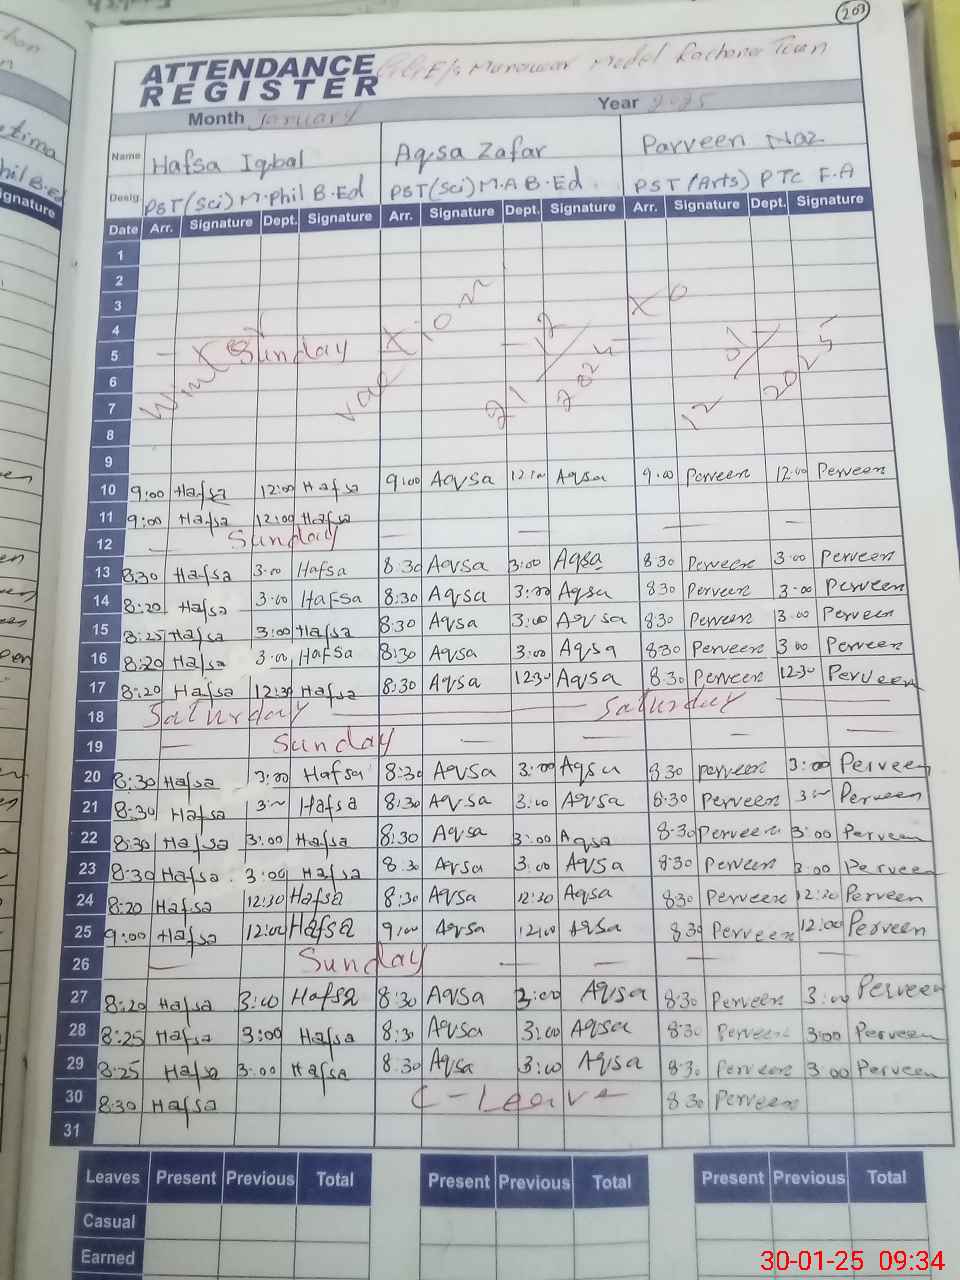 203
ATTENDANCE Munawar Model Rachna Town
REGISTER
Month January Year 2025
Name Hafsa Iqbal Aqsa Zafar Parveen Naz
Desig. PST (Sci) M.Phil B.Ed PST (Sci) M.A B.Ed. PST (Arts) PTC F.A
Date Arr. Signature Dept. Signature Arr. Signature Dept. Signature Arr. Signature Dept. Signature
1
2
3
4
5 Sunday
6
7
8
9
Winter vacation 21/12/2024 to 12/01/2025
10 9:00 Hafsa 12:00 Hafsa 9:00 Aqsa 12:00 Aqsa 9:00 Perveen 12:00 Perveen
11 9:00 Hafsa 12:00 Hafsa
12 — Sunday — — — —
13 8:30 Hafsa 3:00 Hafsa 8:30 Aqsa 3:00 Aqsa 8:30 Perveen 3:00 Perveen
14 8:20 Hafsa 3:00 Hafsa 8:30 Aqsa 3:00 Aqsa 8:30 Perveen 3:00 Perveen
15 8:25 Hafsa 3:00 Hafsa 8:30 Aqsa 3:00 Aqsa 8:30 Perveen 3:00 Perveen
16 8:20 Hafsa 3:00 Hafsa 8:30 Aqsa 3:00 Aqsa 8:30 Perveen 3:00 Perveen
17 8:20 Hafsa 12:30 Hafsa 8:30 Aqsa 12:30 Aqsa 8:30 Perveen 12:30 Perveen
18 Saturday — Saturday — —
19 — Sunday — — — —
20 8:30 Hafsa 3:00 Hafsa 8:30 Aqsa 3:00 Aqsa 8:30 Perveen 3:00 Perveen
21 8:30 Hafsa 3:00 Hafsa 8:30 Aqsa 3:00 Aqsa 8:30 Perveen 3:00 Perveen
22 8:30 Hafsa 3:00 Hafsa 8:30 Aqsa 3:00 Aqsa 8:30 Perveen 3:00 Perveen
23 8:30 Hafsa 3:00 Hafsa 8:30 Aqsa 3:00 Aqsa 8:30 Perveen 3:00 Perveen
24 8:20 Hafsa 12:30 Hafsa 8:30 Aqsa 12:30 Aqsa 8:30 Perveen 12:30 Perveen
25 9:00 Hafsa 12:00 Hafsa 9:00 Aqsa 12:00 Aqsa 8:30 Perveen 12:00 Perveen
26 — Sunday — — — —
27 8:20 Hafsa 3:00 Hafsa 8:30 Aqsa 3:00 Aqsa 8:30 Perveen 3:00 Perveen
28 8:25 Hafsa 3:00 Hafsa 8:30 Aqsa 3:00 Aqsa 8:30 Perveen 3:00 Perveen
29 8:25 Hafsa 3:00 Hafsa 8:30 Aqsa 3:00 Aqsa 8:30 Perveen 3:00 Perveen
30 8:30 Hafsa C-Leave 8:30 Perveen
31
Leaves Present Previous Total Present Previous Total Present Previous Total
Casual
Earned
30-01-25 09:34